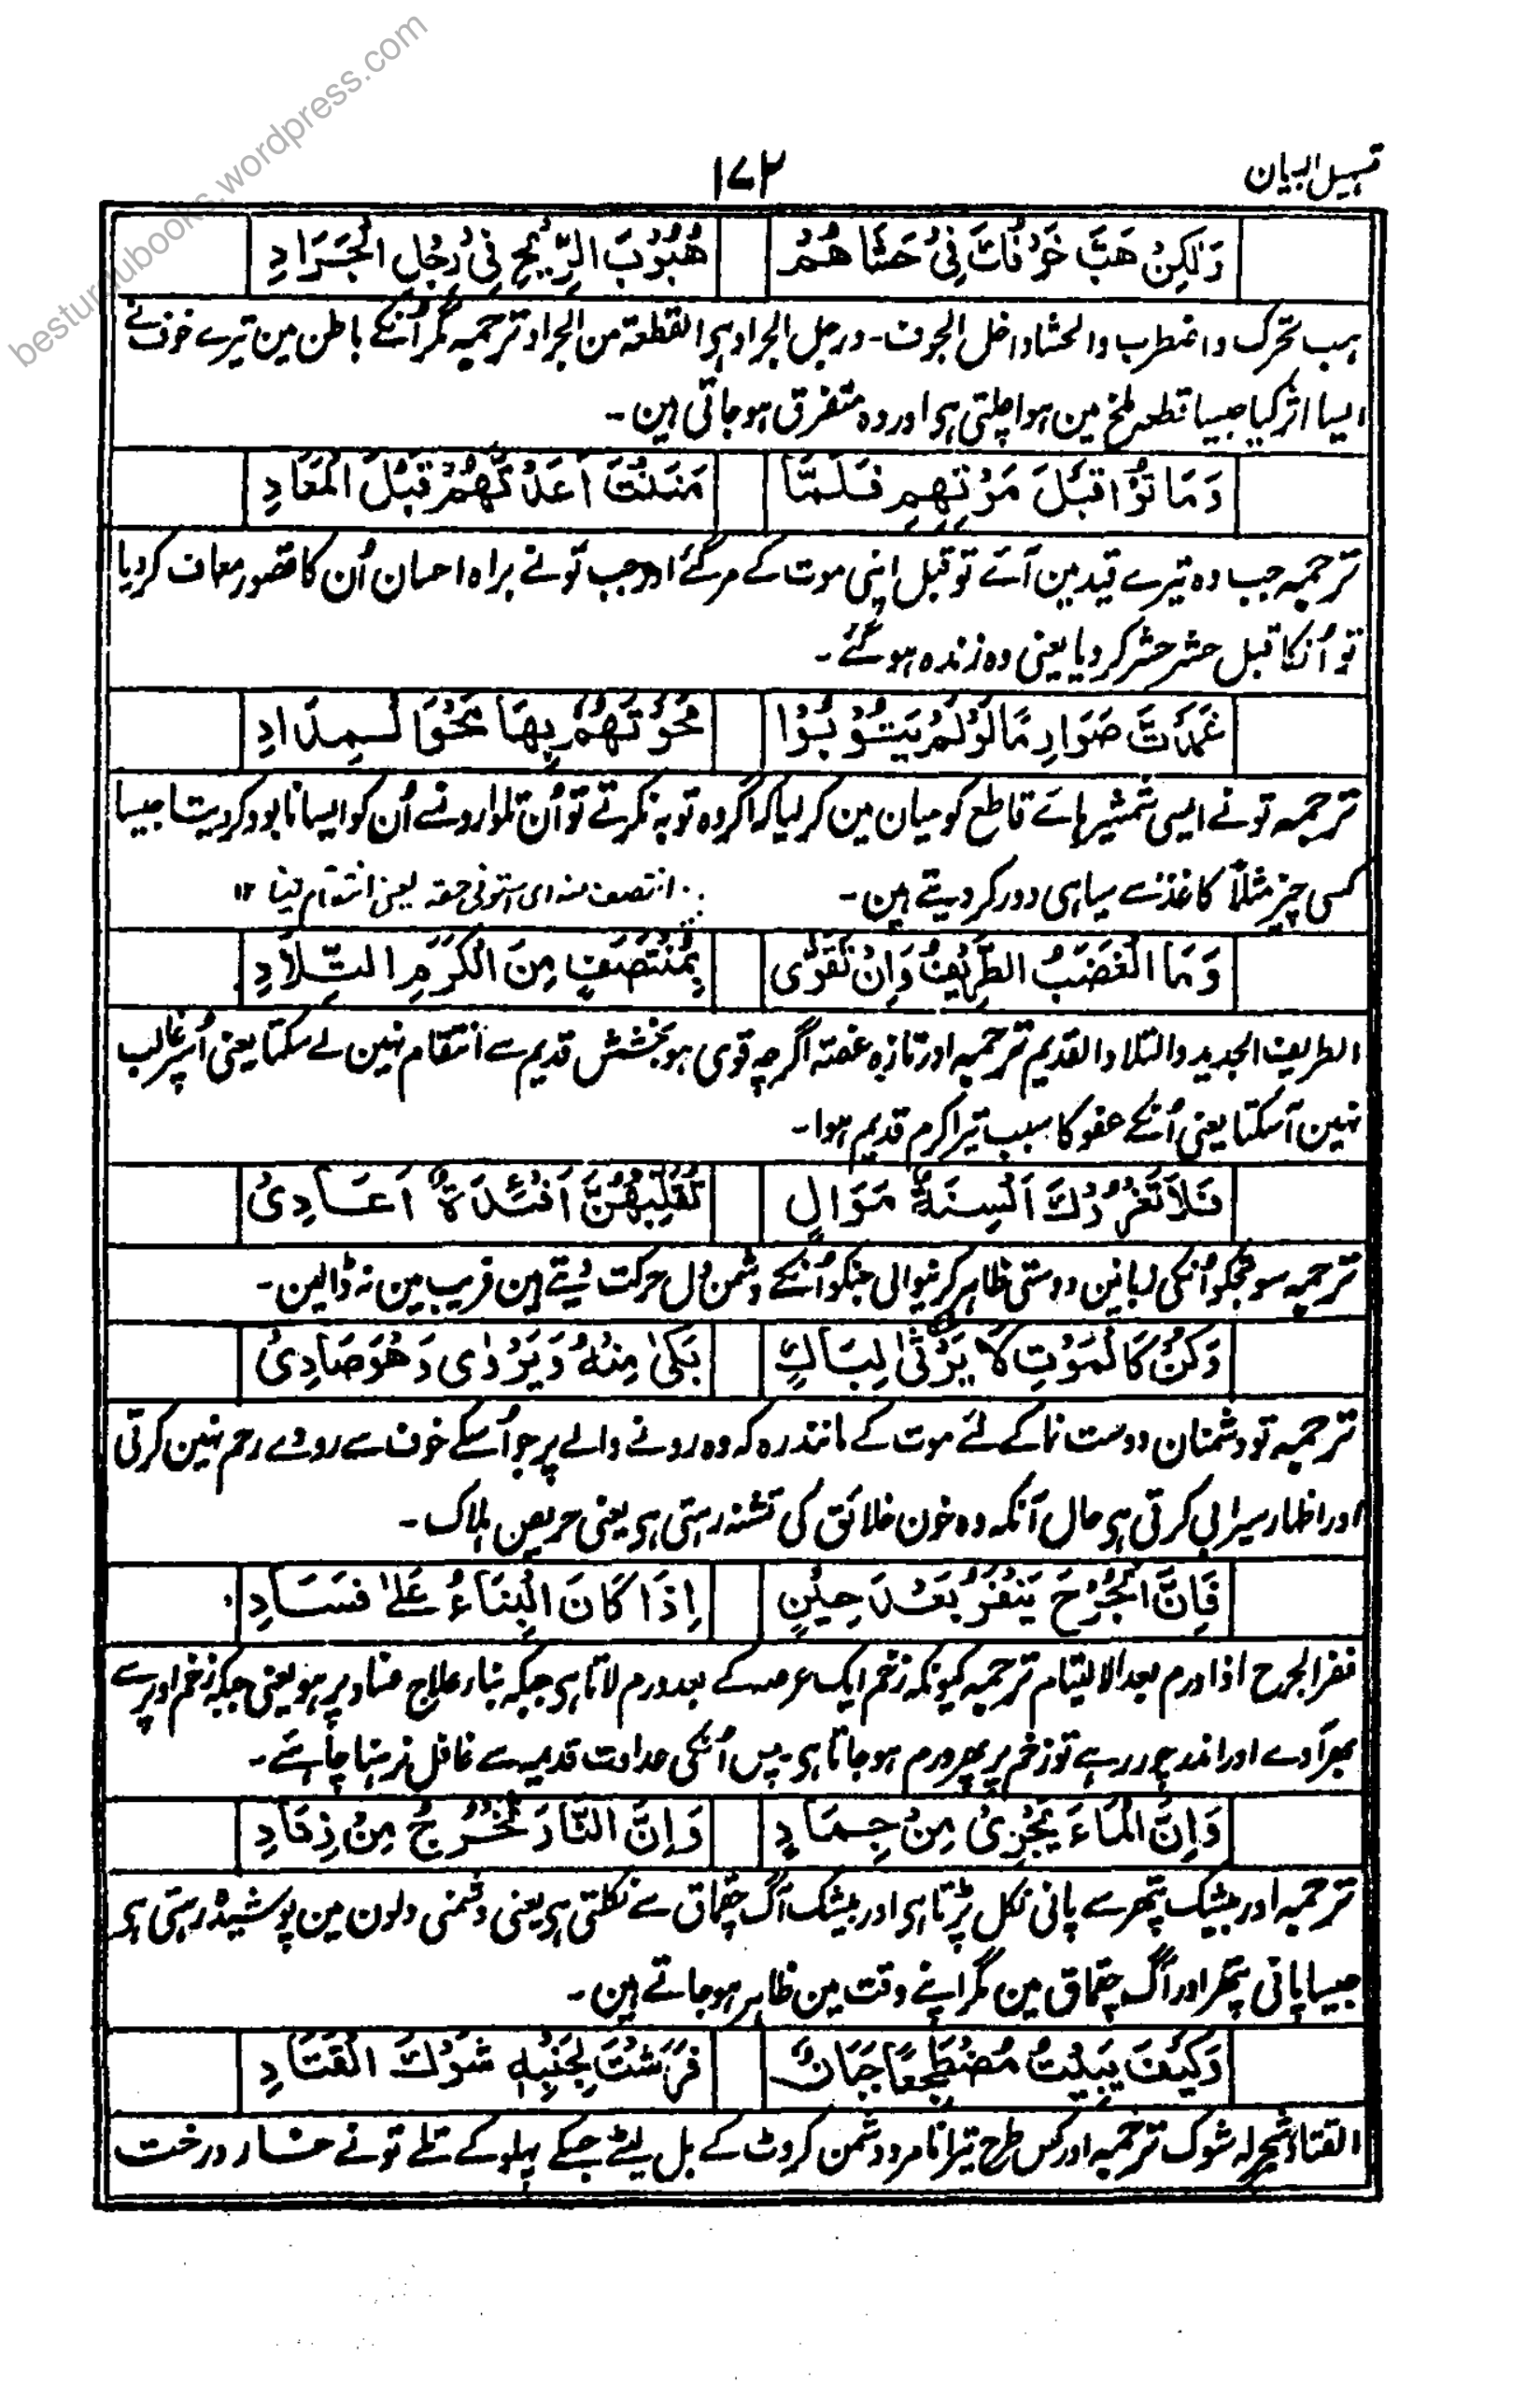 besturdubooks.wordpress.com
تسہیل البیان
۱۷۲
وَلٰكِنْ هَبَّ خَوْفُكَ فِیْ حَشَاهُمْ هُبُوْبَ الرِّیْحِ فِیْ رِجْلِ الْجَرَادِ
ہب تحرک واضطرب والحشا داخل الجوف۔ ورجل الجراد ہی القطعۃ من الجراد ترجمہ مگر اُنکے باطن مین تیرے خوف نے
ایسا اثر کیا جیسا قطعہ ملخ مین ہوا چلتی ہی اور وہ متفرق ہو جاتی ہین۔
وَمَاتُوْا قَبْلَ مَوْتِهِمِ فَلَمَّا مَنَنْتَ اَعَدْتَهُمْ قَبْلَ الْمَعَادِ
ترجمہ جب وہ تیرے قید مین آئے تو قبل اپنی موت کے مر گئے اور جب تو نے براہ احسان اُن کا قصور معاف کر دیا
تو اُنکا قبل حشر حشر کر دیا یعنی وہ زندہ ہو گئے۔
غَمَدْتَ صَوَارِمًا لَوْلَمْ یَتُوْبُوْا مَحَوْتَهُمْ بِهَا مَحْوَ الْمِدَادِ
ترجمہ تو نے ایسی شمشیرہائے قاطع کو میان مین کر لیا کہ اگر وہ توبہ نکرتے تو اُن تلوارونسے اُن کو ایسا نابود کر دیتا جیسا
کسی چیز مثلاً کاغذسے سیاہی دور کر دیتے ہین۔
انتصف منہ ای استوفی حقہ یعنی انتقام لینا ۱۲
وَمَا الْغَضَبُ الطَّرِیْفُ وَاِنْ تَقَوّٰی بِمُنْتَصَفٍ مِنَ الْكَرَمِ التِّلَادِ
الطریف الجدید والتلاد القدیم ترجمہ اور تازہ غصّہ اگرچہ قوی ہو بخشش قدیم سے انتقام نہین لے سکتا یعنی اُسپر غالب
نہین آسکتا یعنی اُنکے عفو کا سبب تیرا کرم قدیم ہوا۔
فَلَا تَغْرُرْكَ اَلْسِنَةٌ مَوَالٍ تُقَلِّبُهُنَّ اَفْئِدَةٌ اَعَادِیْ
ترجمہ سو تجکو اُنکی زبانین دوستی ظاہر کرنیوالی جنکو اُنکے دشمن دل حرکت دیتے ہین فریب مین نہ ڈالین۔
وَكُنْ كَالْمَوْتِ لَا یَرْثٰی لِبَاكٍ بَكٰی مِنْهُ وَیَرْوٰی وَهُوَ صَادِیْ
ترجمہ تو دشمنان دوست نما کے لئے موت کے مانند رہ کہ وہ رونے والے پر جو اُسکے خوف سے رووے رحم نہین کرتی
اور اظہار سیرابی کرتی ہی حال آنکہ وہ خون خلائق کی تشنہ رہتی ہی یعنی حریص ہلاک۔
فَاِنَّ الْجُرْحَ یَنْفُرُ بَعْدَ حِیْنٍ اِذَا كَانَ الْبِنَاءُ عَلٰی فَسَادٍ
نفر الجرح اذا ورم بعد الالتیام ترجمہ کیونکہ زخم ایک عرصہ کے بعد ورم لاتا ہی جبکہ بناء علاج فساد پر ہو یعنی جبکہ زخم اوپر سے
بھر آوے اور اندر چور رہے تو زخم پر پھر ورم ہو جاتا ہی۔ پس اُنکی عداوت قدیمہ سے غافل نرہنا چاہئے۔
وَاِنَّ الْمَاءَ یَجْرِیْ مِنْ جِمَادٍ وَاِنَّ النَّارَ تَخْرُجُ مِنْ زِنَادِ
ترجمہ اور بیشک پتھر سے پانی نکل پڑتا ہی اور بیشک آگ چقماق سے نکلتی ہی یعنی دشمنی دلون مین پوشیدہ رہتی ہی
جیسا پانی پتھر اور آگ چقماق مین مگر اپنے وقت مین ظاہر ہو جاتے ہین۔
وَكَیْفَ یَبِیْتُ مُضْطَجِعًا جَبَانٌ فَرَشْتَ لِجَنْبِهٖ شَوْكَ الْقَتَادِ
القتاد شجر لہ شوک ترجمہ اور کس طرح تیرا نامرد دشمن کروٹ کے بل لیٹے جسکے پہلو کے تلے تو نے خار درخت